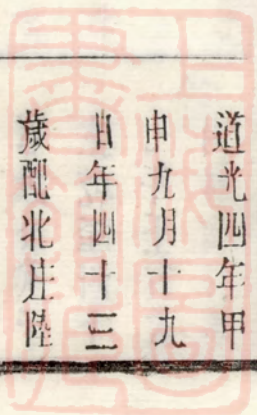 道光四年甲
申九月十九
日年四十三
歲配北庄陸